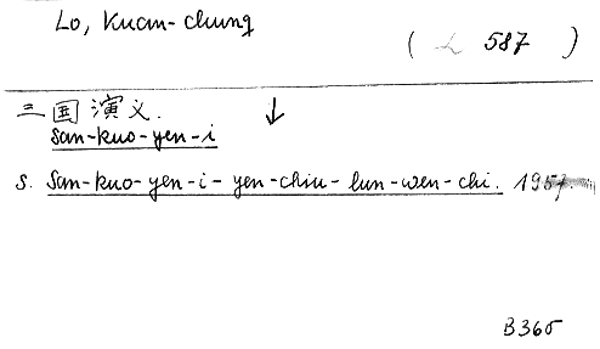 Lo, Kuan-chung
( L 587 )
三国演义.
San-kuo-yen-i
s. San-kuo-yen-i-yen-chiu-lun-wen-chi. 1957.
B365